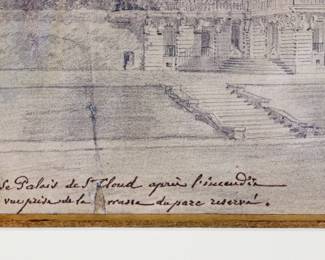 Le Palais de St Cloud après l'incendie
vue prise de la terrasse du parc reservé.